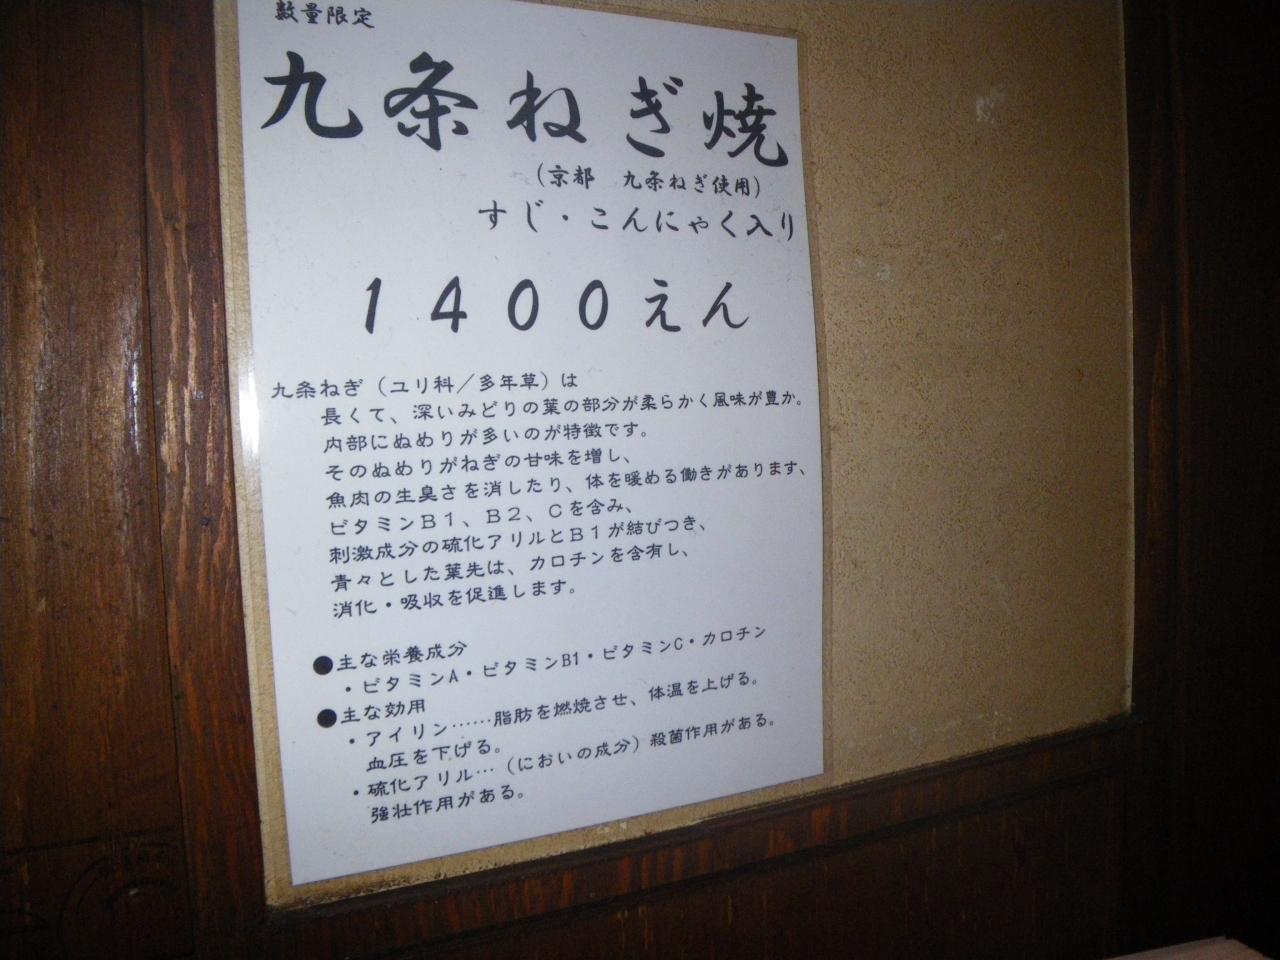 数量限定
九条ねぎ焼
（京都　九条ねぎ使用）
すじ・こんにゃく入り
１４００えん
九条ねぎ（ユリ科／多年草）は
長くて、深いみどりの葉の部分が柔らかく風味が豊か。
内部にぬめりが多いのが特徴です。
そのぬめりがねぎの甘味を増し、
魚肉の生臭さを消したり、体を暖める働きがあります、
ビタミンＢ１、Ｂ２、Ｃを含み、
刺激成分の硫化アリルとＢ１が結びつき、
青々とした葉先は、カロチンを含有し、
消化・吸収を促進します。
●主な栄養成分
・ビタミンA・ビタミンB1・ビタミンC・カロチン
●主な効用
・アイリン……脂肪を燃焼させ、体温を上げる。
血圧を下げる。
・硫化アリル…（においの成分）殺菌作用がある。
強壮作用がある。